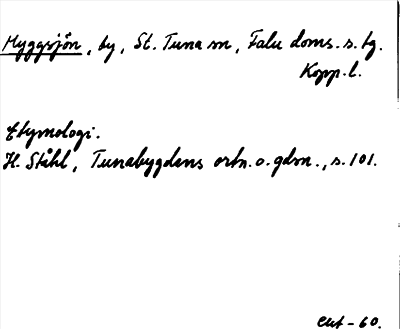 Myggsjön, by, St. Tuna sn, Falu doms. s. tg.
Kopp. l.
Etymologi.
H. Ståhl, Tunabygdens ortn. o. gdsn., s. 101.
-60.